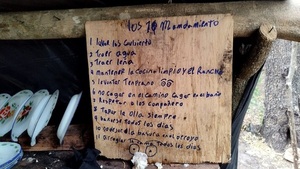 los 10 Mandamiento
1 labar los Cubierto
2 Traer agua
3 Traer leña
4 mantener la cocina limpio y el Rancho
5 levantar Temprano
6 no cagar en el camino cagar en el baño
7 Respetar a los compañero
8 Tapar la olla siempre
9 bañarse todos los dias
10 no dejar basura en el arroyo
11 arreglar cama todos los dias